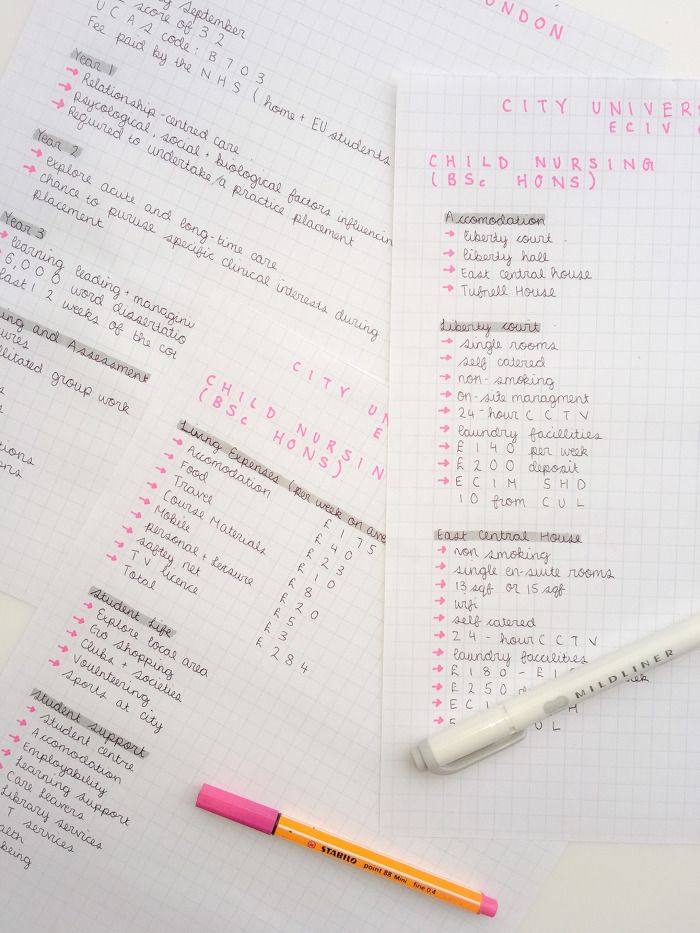 ONDON
by September
UCAS score of 32
UCAS code: B703
Fee paid by the NHS (home + EU students
Year 1
→ Relationship-centred care
→ Psycological, social + biological factors influencin
→ Required to undertake a practice placement
Year 2
→ explore acute and long-time care
→ chance to puruse specific clinical interests during
placement
Year 3
→ learning leading + managing
6,000 word dissertatio
last 12 weeks of the cou
ing and Assessment
ures
litated group work
s
s
tions
ons
CITY UN
E
CHILD NURSIN
(BSc HONS)
Living Expenses (per week on ave
→ Accomodation £175
→ Food £40
→ Travel £23
→ Course Materials £10
→ Mobile £8
→ personal + leisure £20
→ saftey net £5
→ TV licence £3
→ Total £284
Student life
→ Explore local area
→ Go shopping
→ Clubs + societies
→ Vounteering
→ Sports at city
Student support
→ Student centre
→ Accomodation
→ Employability
→ Learning support
→ Care leavers
Library services
T services
alth
being
CITY UNIVERS
ECIV
CHILD NURSING
(BSc HONS)
Accomodation
→ liberty court
→ liberty hall
→ East central house
→ Tufnell House
Liberty court
→ single rooms
→ self catered
→ non-smoking
→ on-site managment
→ 24-hour CCTV
→ laundry facillities
→ £140 per week
→ £200 deposit
→ EC1M 5HD
10 from CUL
East Central House
→ non smoking
→ single en-suite rooms
→ 13 sqf or 15 sqf
→ wifi
→ self catered
→ 24-hour CCTV
→ laundry faccilities
→ £180 - £1
→ £250
→ EC1
→ 5 UL
MILDLINER
STABILO point 88 Mini fine 0.4